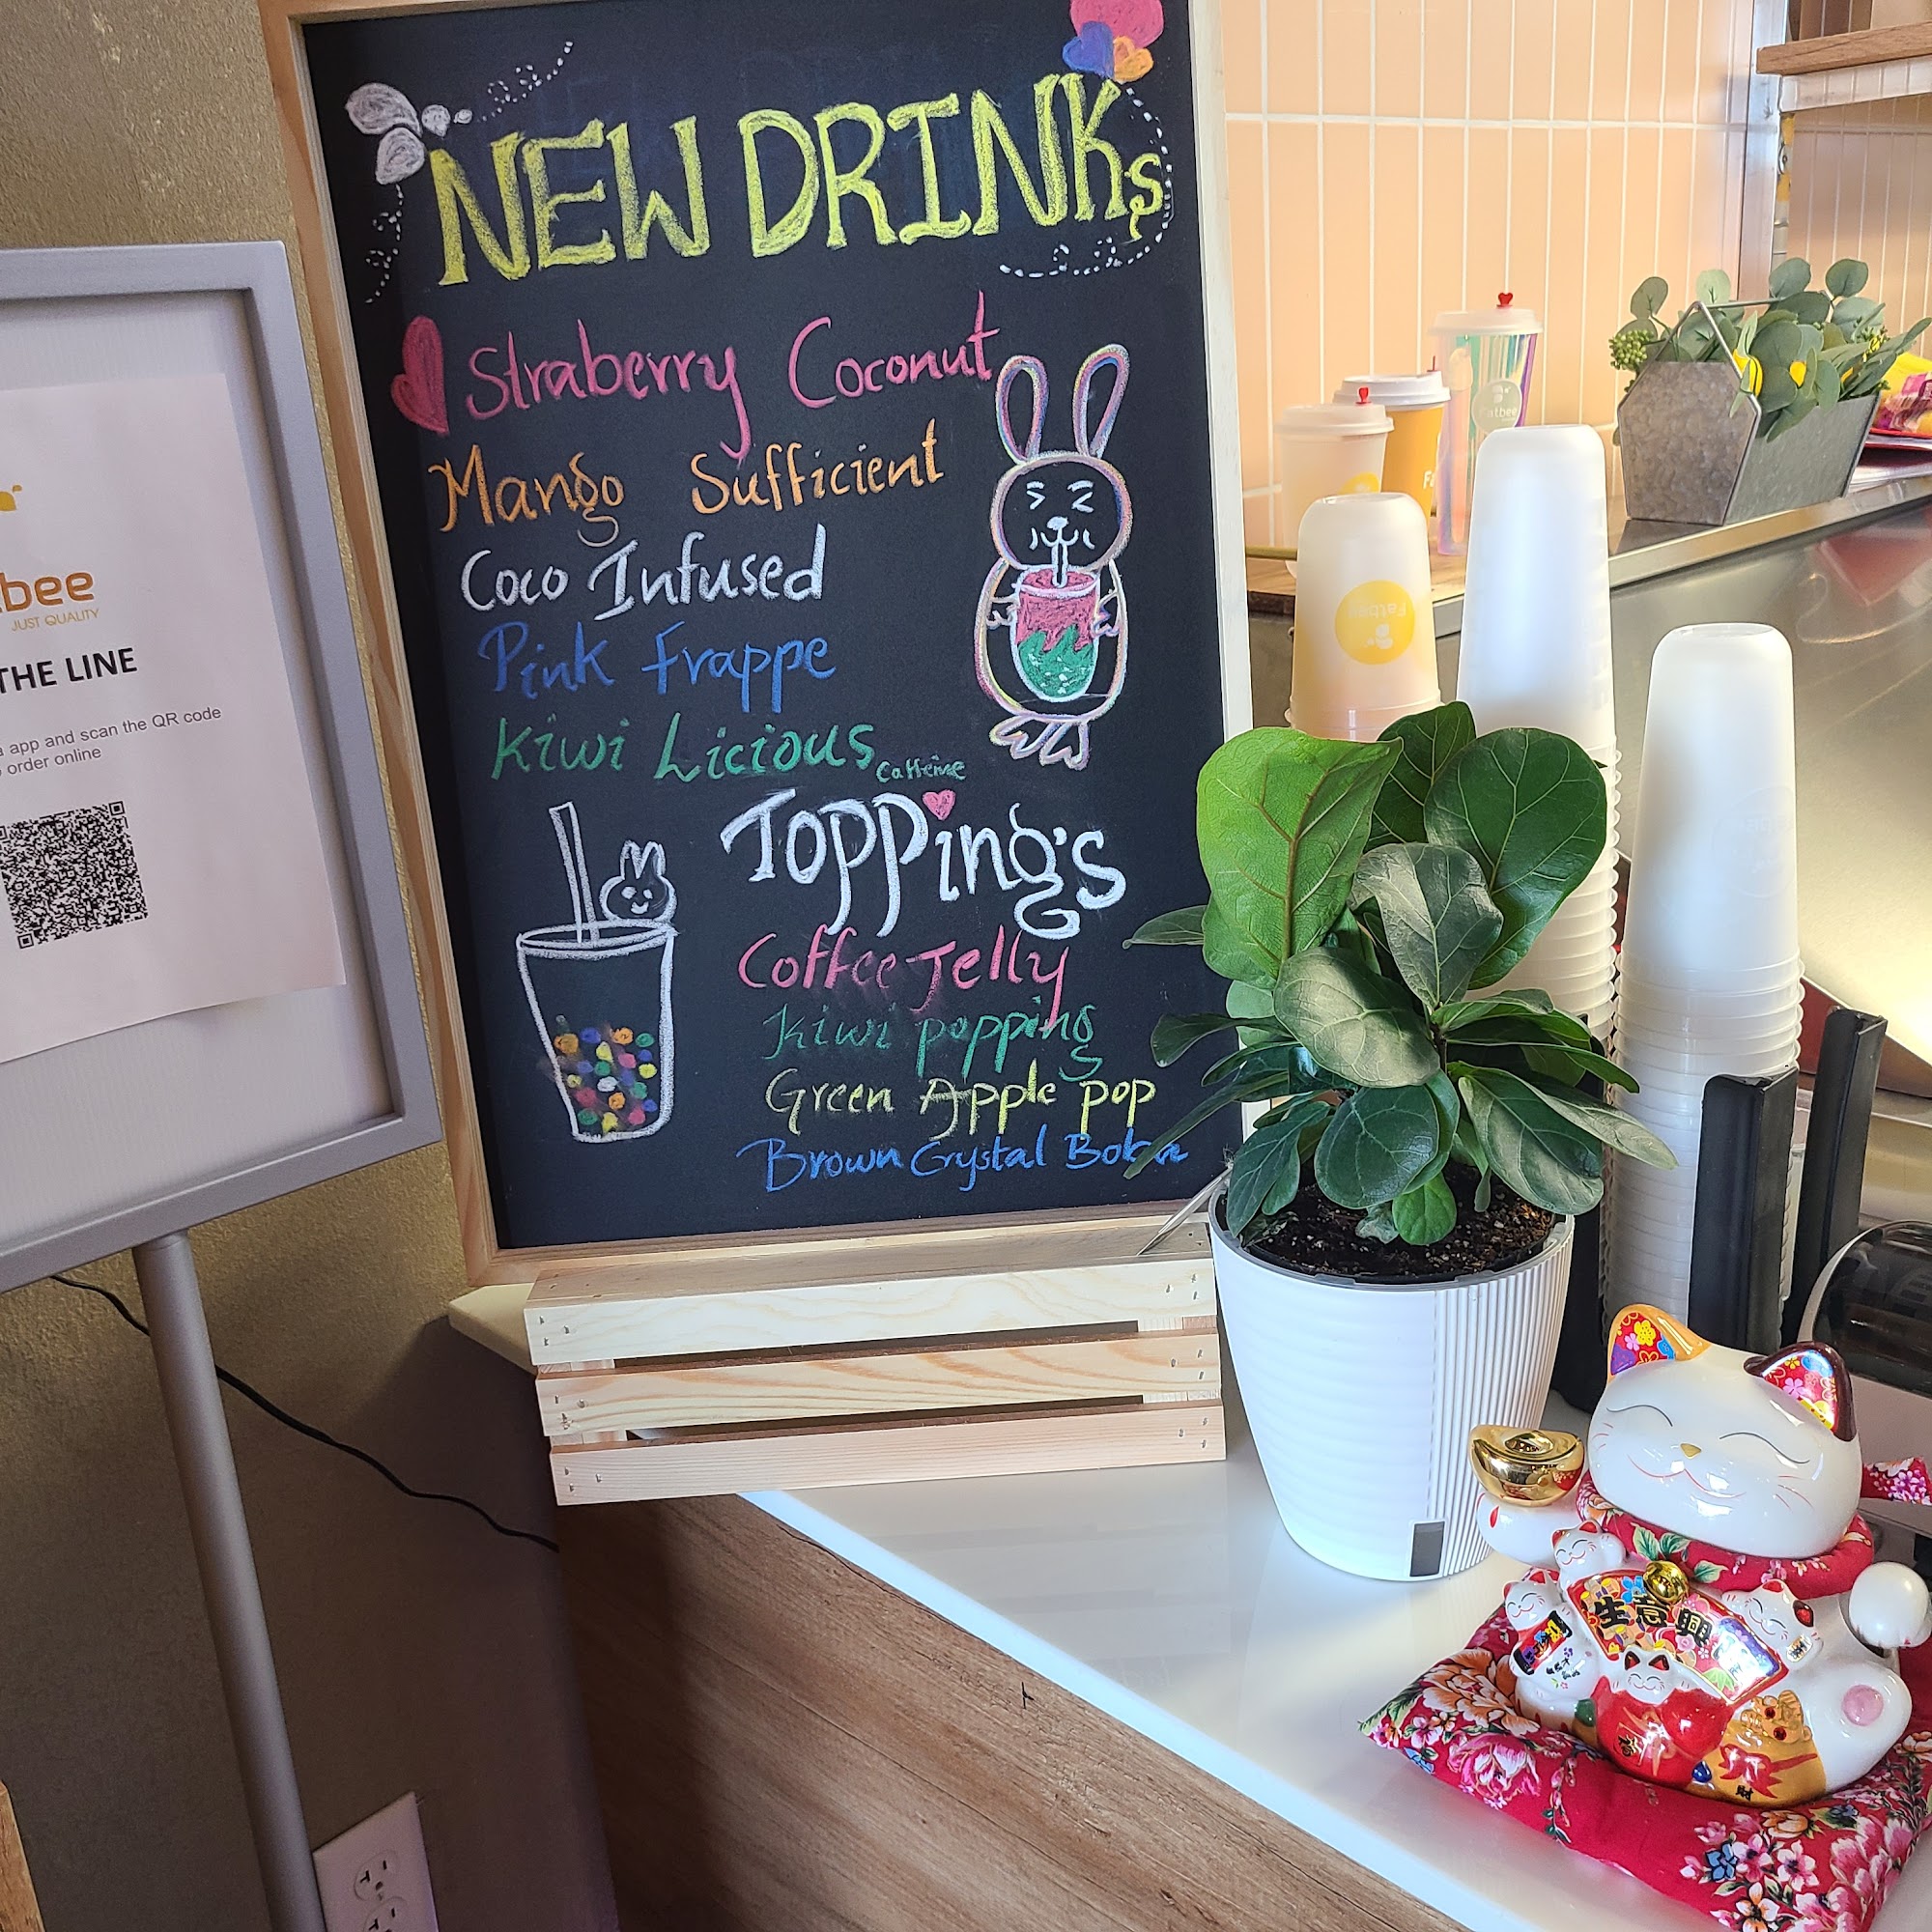 NEW DRINKs
Straberry Coconut
Mango Sufficient
Coco Infused
Pink frappe
Kiwi Licious
Caffeine
Topping's
Coffee Jelly
Kiwi popping
Green Apple pop
Brown Crystal Boba
bee
JUST QUALITY
THE LINE
app and scan the QR code
order online
Fatbee
Fatbee
生意興
財